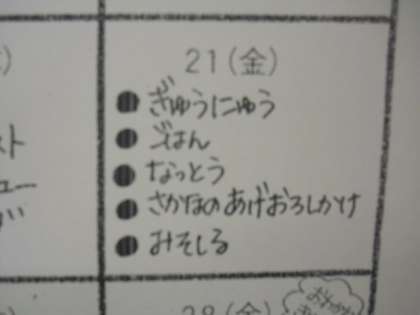 21(金)
ぎゅうにゅう
ごはん
なっとう
さかなのあげおろしかけ
みそしる
スト
ュー
28(金)